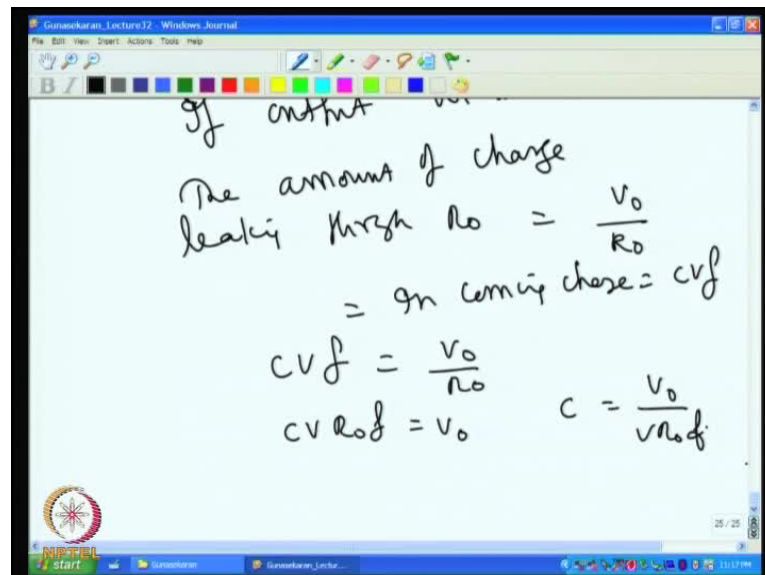 Gunasekaran_Lecture32 - Windows Journal
File Edit View Insert Actions Tools Help
B I
If output
The amount of charge
leaking through Ro = Vo / Ro
= In coming charge = cvf
cvf = Vo / Ro
cv Rof = Vo
c = Vo / VRof
25 / 25
NPTEL
start Gunasekaran Gunasekaran_Lectur... 11:17 PM